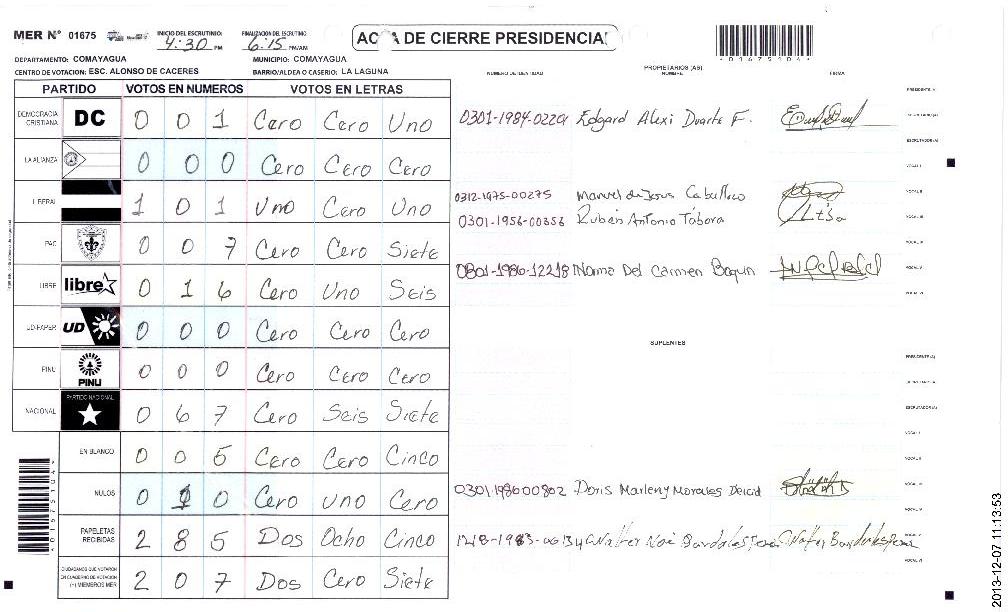 MER N° 01675 INICIO DEL ESCRUTINIO: 4:30 PM FINALIZACION DEL ESCRUTINIO 6:15 PM/AM
ACTA DE CIERRE PRESIDENCIAL
DEPARTAMENTO: COMAYAGUA MUNICIPIO: COMAYAGUA
CENTRO DE VOTACION: ESC. ALONSO DE CACERES BARRIO/ALDEA O CASERIO: LA LAGUNA
*01675104*
PROPIETARIOS (AS)
NUMERO DE IDENTIDAD NOMBRE FIRMA
PARTIDO VOTOS EN NUMEROS VOTOS EN LETRAS
DEMOCRACIA CRISTIANA DC 0 0 1 Cero Cero Uno
LA ALIANZA 0 0 0 Cero Cero Cero
LIBERAL 1 0 1 Uno Cero Uno
PAC 0 0 7 Cero Cero Siete
LIBRE libre 0 1 6 Cero Uno Seis
UD-FAPER UD 0 0 0 Cero Cero Cero
PINU PINU 0 0 0 Cero Cero Cero
NACIONAL PARTIDO NACIONAL 0 6 7 Cero Seis Siete
EN BLANCO 0 0 5 Cero Cero Cinco
NULOS 0 1 0 Cero uno Cero
PAPELETAS RECIBIDAS 2 8 5 Dos Ocho Cinco
CIUDADANOS QUE VOTARON EN CUADERNO DE VOTACION (+) MIEMBROS MER 2 0 7 Dos Cero Siete
*01675104*
PRESIDENTE(A)
0301-1984-02201 Edgard Alexi Duarte F. SECRETARIO(A)
ESCRUTADOR(A)
VOCAL I
0312-1975-00275 Manuel de Jesus Caballero VOCAL II
0301-1956-00353 Ruben Antonio Tábora VOCAL III
VOCAL IV
0801-1980-12218 Norma Del Carmen VOCAL V
VOCAL VI
SUPLENTES
PRESIDENTE(A)
SECRETARIO(A)
ESCRUTADOR(A)
VOCAL I
VOCAL II
0301-198600802 Doris Marleny Morales VOCAL III
VOCAL IV
Walter Noe VOCAL V
VOCAL VI
2013-12-07 11:13:53